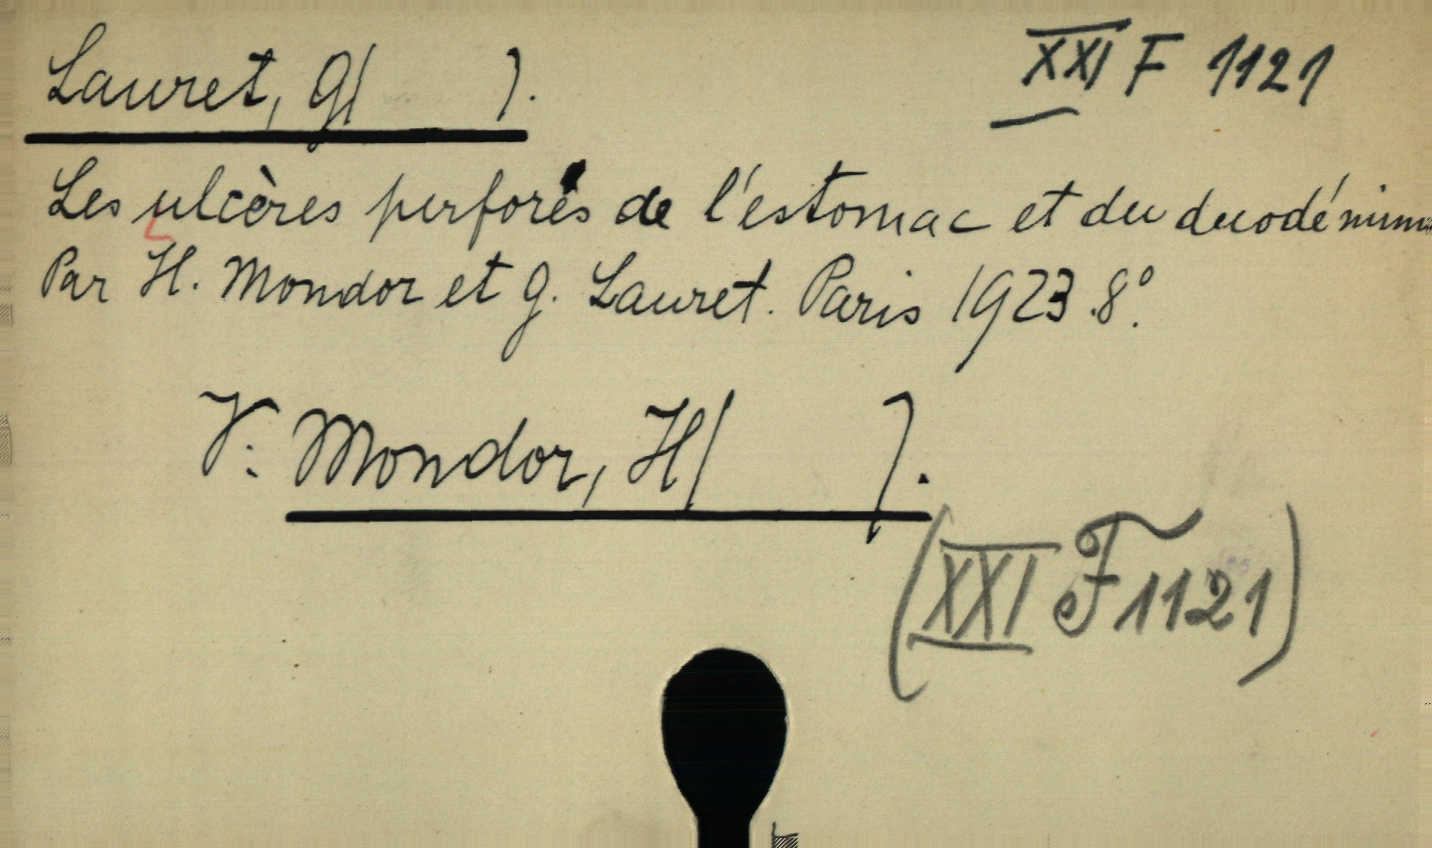 Lauret, G( ).
XXI F 1121
Les ulcères perforés de l'estomac et du duodénum
Par H. Mondor et G. Lauret. Paris 1923.8°.
V: Mondor, H( ).
(XXI F 1121)